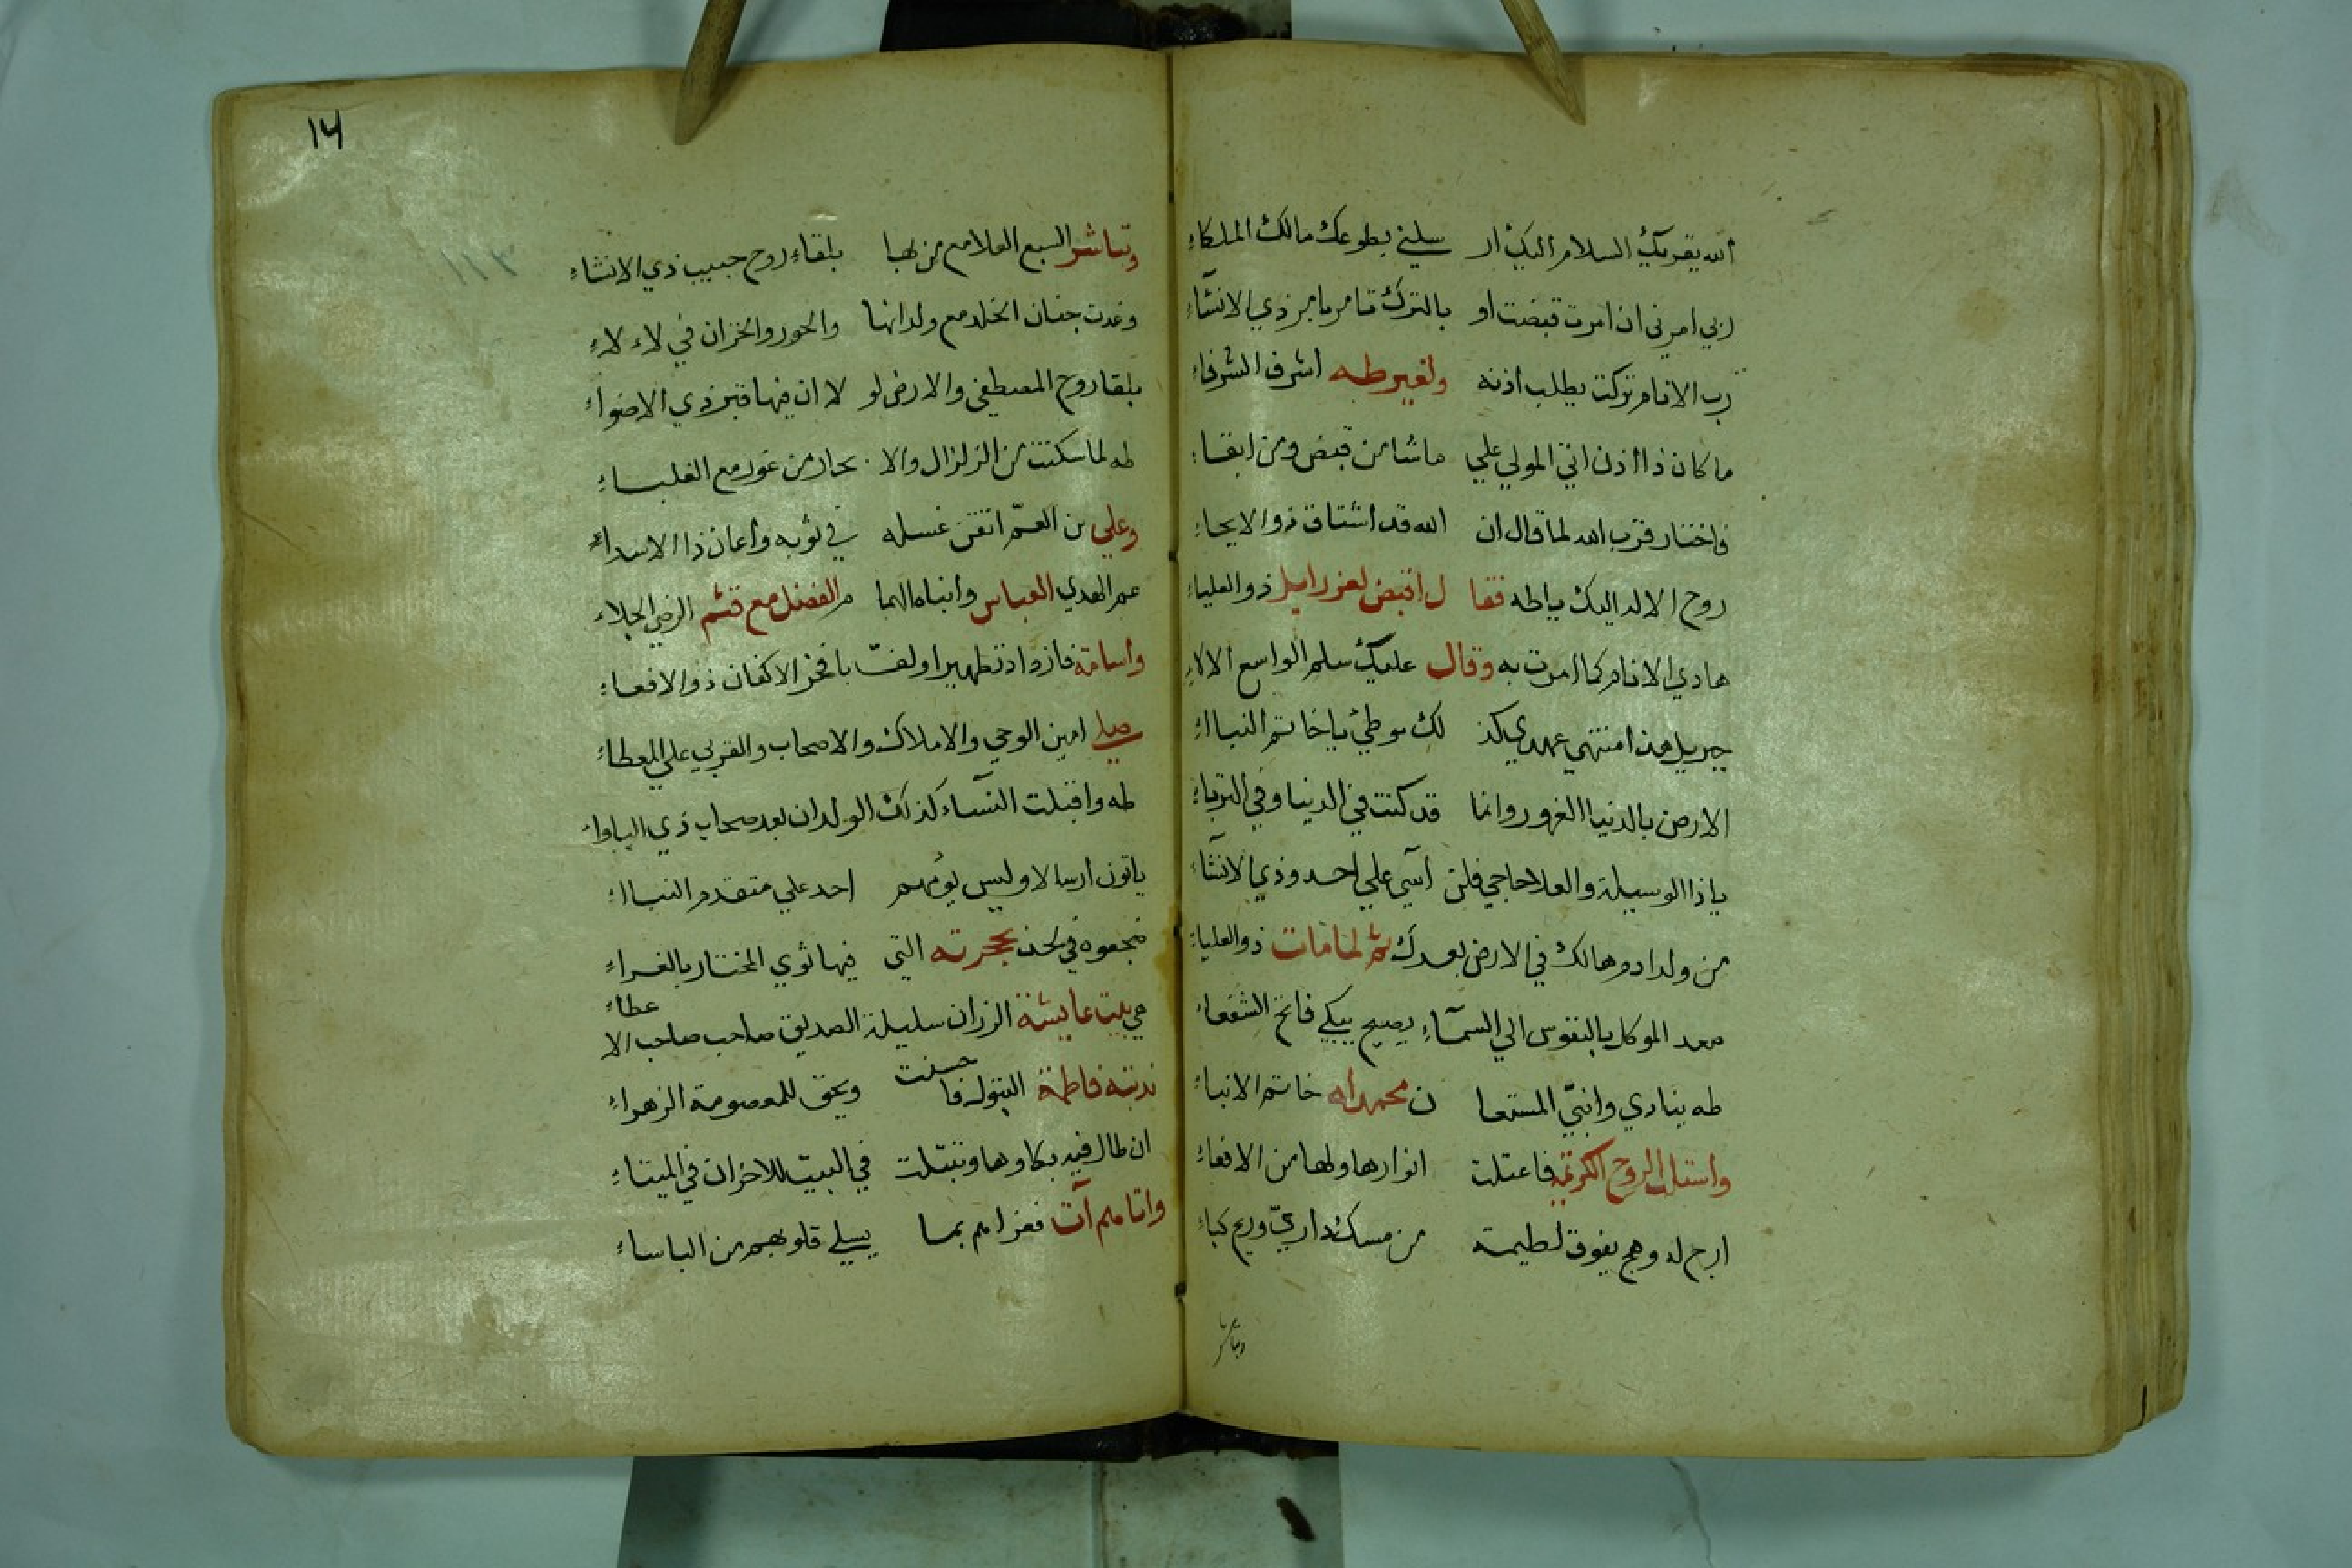 الله يقريك السلام اليك ار سلني بطوعك مالك الملكاءِ
ربي امرني ان امرت قبضت او بالترك تامر ما مر ذي الانشاءِ
رب الانام تركت يطلب اذنه ولغير طه اشرف الشرفاءِ
ما كان ذا اذن اتي المولي علي ماشا من قبض ومن ابقاءِ
فاختار قرب الله لما قال ان الله قد اشتاق ذو الايحاءِ
روح الاله اليك ياطه فقا ل اقبض لعزراييل ذو العلياءِ
هادي الانام كما امرت به وقال عليك سلم الواسع الالاءِ
جبريل هذا منتهي عهدي كذ لك موطئ يا خاتم النباءِ
الارض بالدنيا الغرور وانما قد كنت في الدنيا وفي الترباءِ
ياذا الوسيلة والعلا حاجي فلن آسي علي احد وذي الانشاءِ
من ولد ادم هالك في الارض بعدك ثم لما مات ذو العلياءِ
صعد الموكل بالنفوس الي السماءِ يصيح يبكي فاتح الشفعاءِ
طه ينادي وانبيّ المستعا ن محمداه خاتم الانباءِ
واستلت الروح الكريمة فاعتلت انوارها ولها من الافعاءِ
ارج له وهج يفوق لطيمة من مسك داريّ وريح كباءِ
وتباشر
14
١١٣
وتباشر السبع العلا مع من بها بلقاءِ روح حبيب ذي الانشاءِ
وغدت جنان الخلد مع ولدانها والحور والخزان في لاءلاءِ
بلقا روح المصطفي والارض لو لا ان فيها قبر ذي الاضواءِ
طه لما سكنت من الزلزال والا بحار من غور مع الغلباءِ
وعلي بن العمّ اتقن غسله في ثوبه واعان ذا الاسداءِ
عم الهدي العباس وابناه الهما م الفضل مع قثم الرضي الجلاءِ
واسامة فازداد تطهيرا ولفّ بافخر الاكفان ذو الافعاءِ
صلي امين الوحي والاملاك والاصحاب والقربي علي المعطاءِ
طه واقبلت النساء كذلك الولدان بعد صحاب ذي الباواءِ
ياتون ارسالا وليس يؤمهم احد علي متقدم النباءِ
ضجعوه في لحد بحجرته التي فيها ثوي المختار بالغراءِ
هي بيت عايشة الرزان سليلة الصديق صاحب صاحب الا عطاءِ
ندبته فاطمة البتول فا حسنت ويحق للمعصومة الزهراءِ
ان طال فيه بكاوها وتبتلت في البيت للاحزان في الميتاءِ
واتاهم آت فعزاهم بما يسلي قلوبهم من الباساءِ